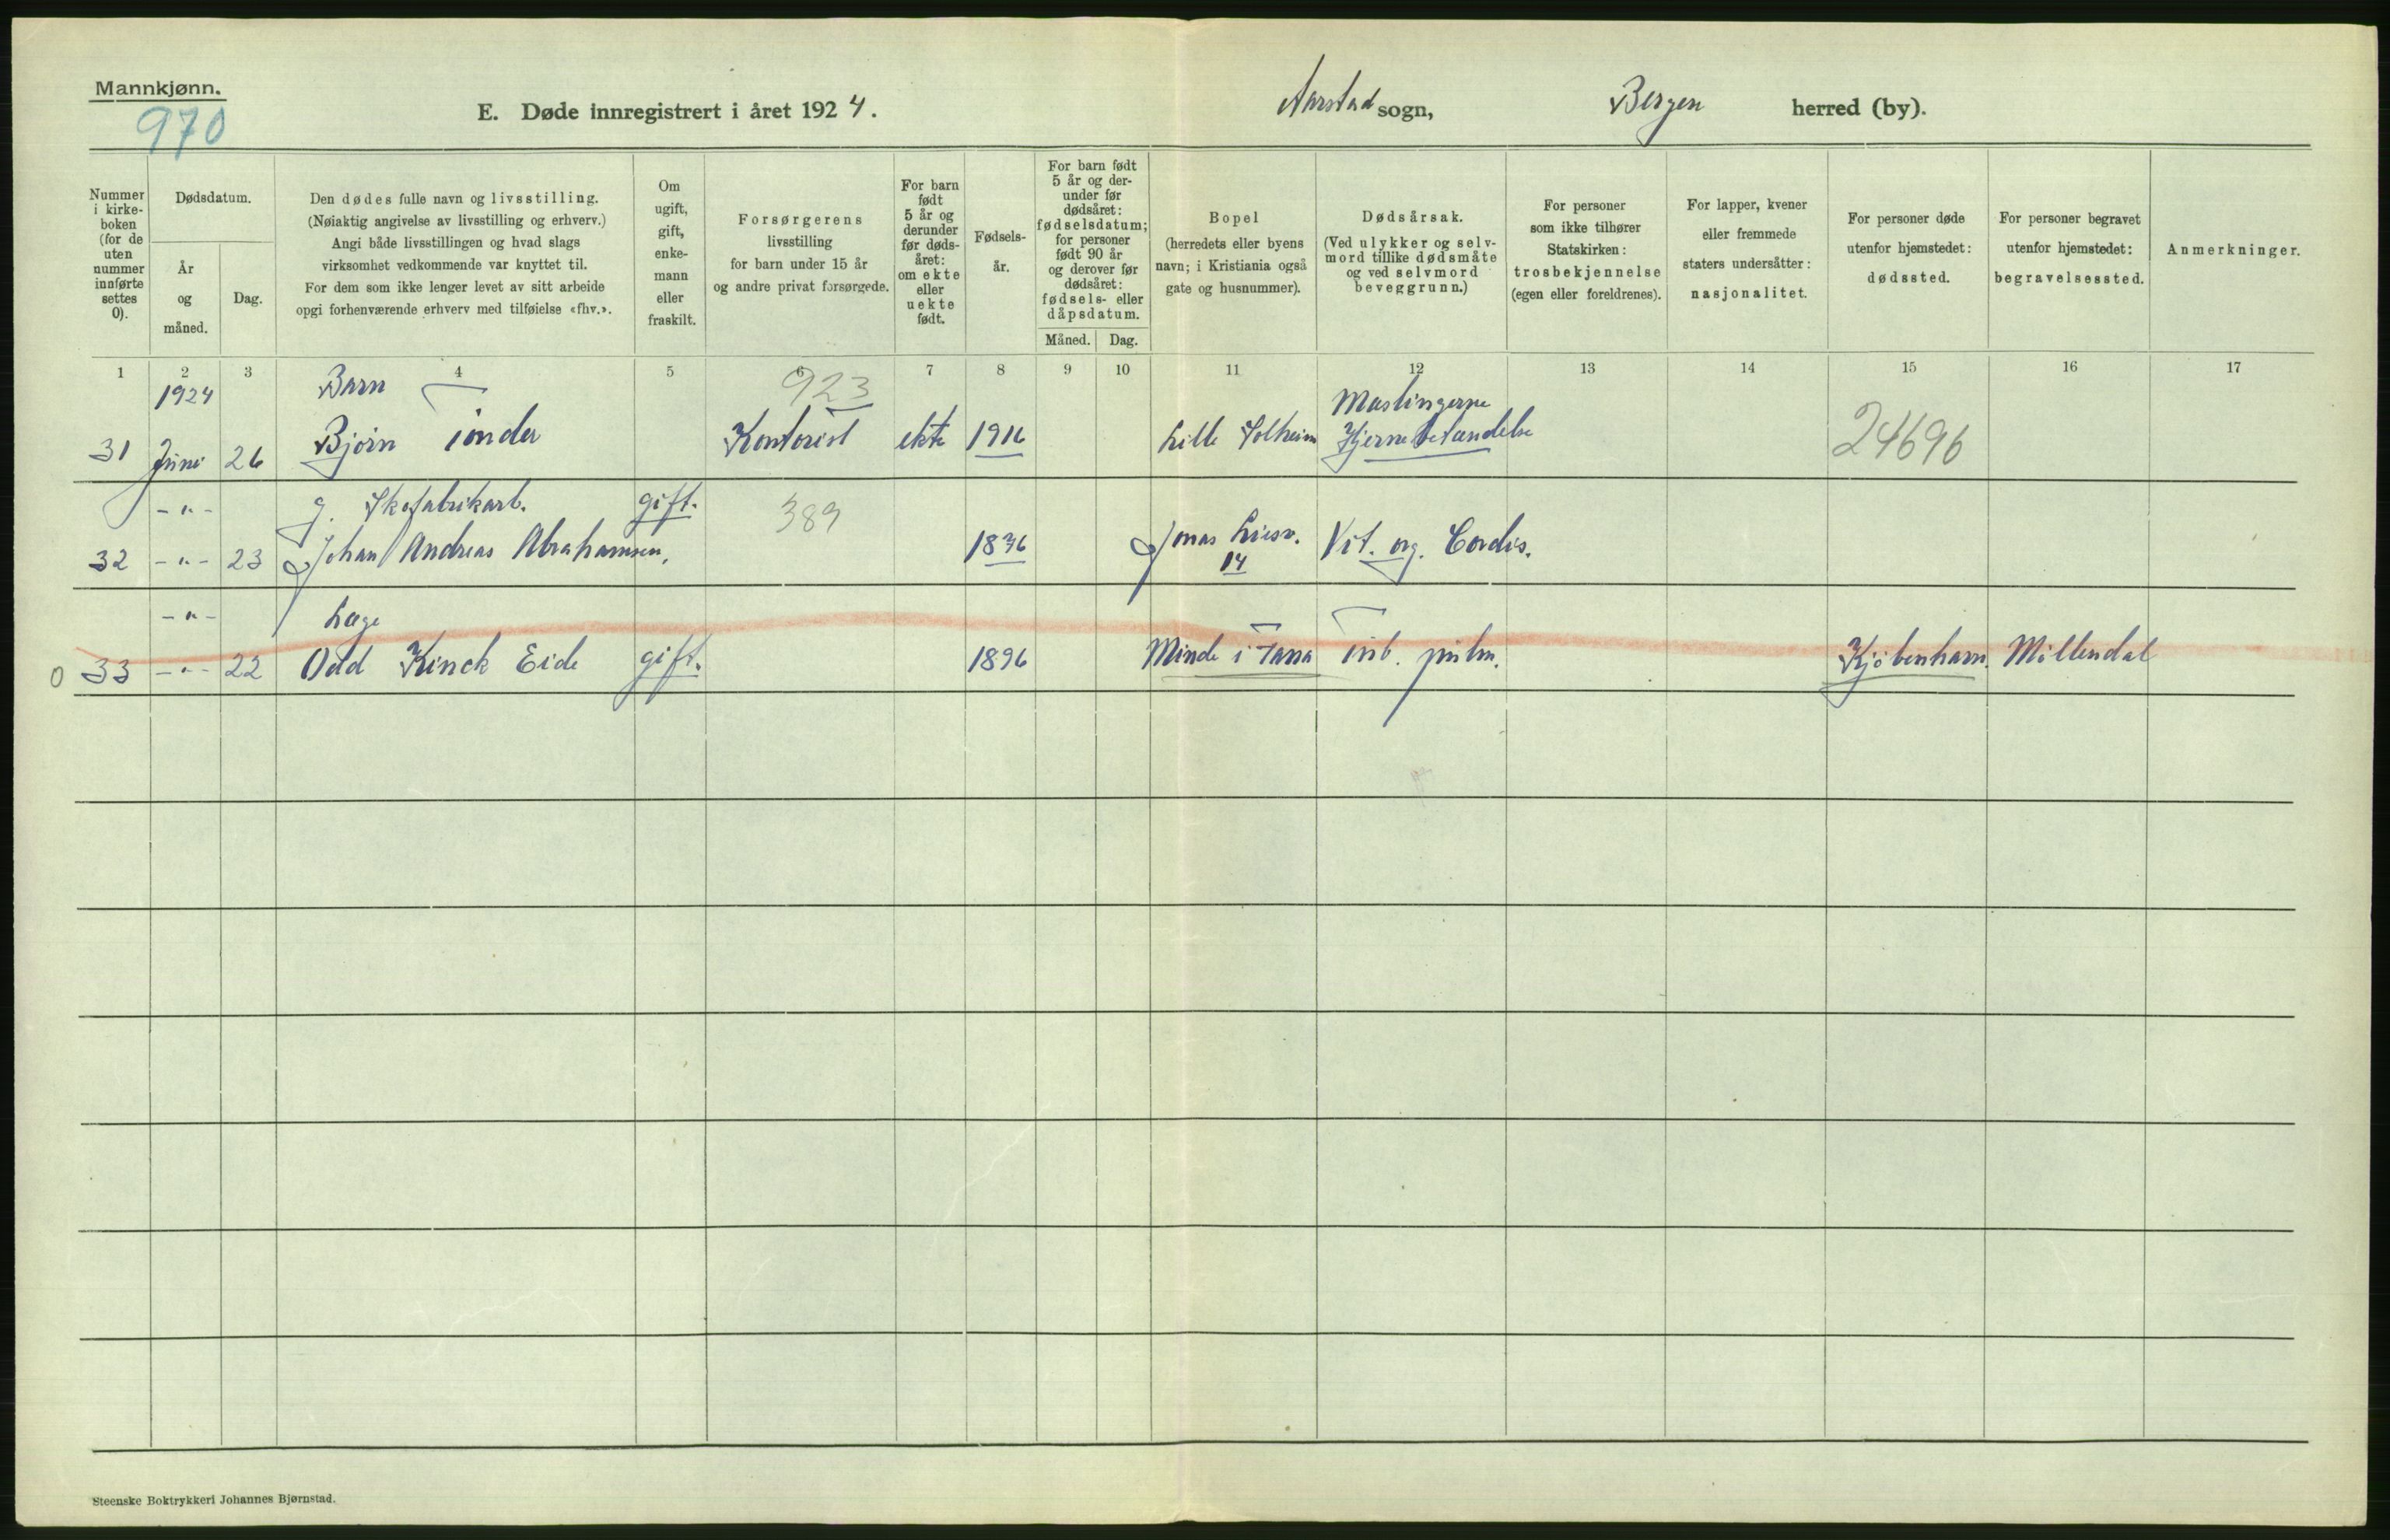 Mannkjønn.
970
E. Døde innregistrert i året 1924.
Aarstad sogn,
Bergen herred (by).
Nummer i kirke-boken (for de uten nummer innførte settes 0).
Dødsdatum.
År og måned.
Dag.
Den dødes fulle navn og livsstilling.
(Nøiaktig angivelse av livsstilling og erhverv.)
Angi både livsstillingen og hvad slags
virksomhet vedkommende var knyttet til.
For dem som ikke lenger levet av sitt arbeide
opgi forhenværende erhverv med tilføielse «fhv.».
Om ugift, gift, enke-mann eller fraskilt.
Forsørgerens
livsstilling
for barn under 15 år
og andre privat forsørgede.
For barn født 5 år og derunder før døds-året: om ekte eller uekte født.
Fødsels-år.
For barn født 5 år og der-under før dødsåret: fødselsdatum; for personer født 90 år og derover før dødsåret: fødsels- eller dåpsdatum.
Måned.
Dag.
Bopel
(herredets eller byens
navn; i Kristiania også
gate og husnummer).
Dødsårsak.
(Ved ulykker og selv-
mord tillike dødsmåte
og ved selvmord
beveggrunn.)
For personer
som ikke tilhører
Statskirken:
trosbekjennelse
(egen eller foreldrenes).
For lapper, kvener
eller fremmede
staters undersåtter:
nasjonalitet.
For personer døde
utenfor hjemstedet:
dødssted.
For personer begravet
utenfor hjemstedet:
begravelsessted.
Anmerkninger.
1 2 3 4 5 6 7 8 9 10 11 12 13 14 15 16 17
1924 Barn 923 Maslingerne
31 Juni 26 Bjørn Tønder Kontorist ekte 1916 Lille Solheim Hjernebetændelse 24696
-"- g. Skofabrikarb. gift. 389
32 -"- 23 Johan Andreas Abrahamsen, 1836 Jonas Liesv. 14 Vit. org. Cordis.
-"- Læge
0 33 -"- 22 Odd Kinck Eide gift. 1896 Minde i Fana Tub. pulm. Kjøbenhavn. Møllendal
Steenske Boktrykkeri Johannes Bjørnstad.